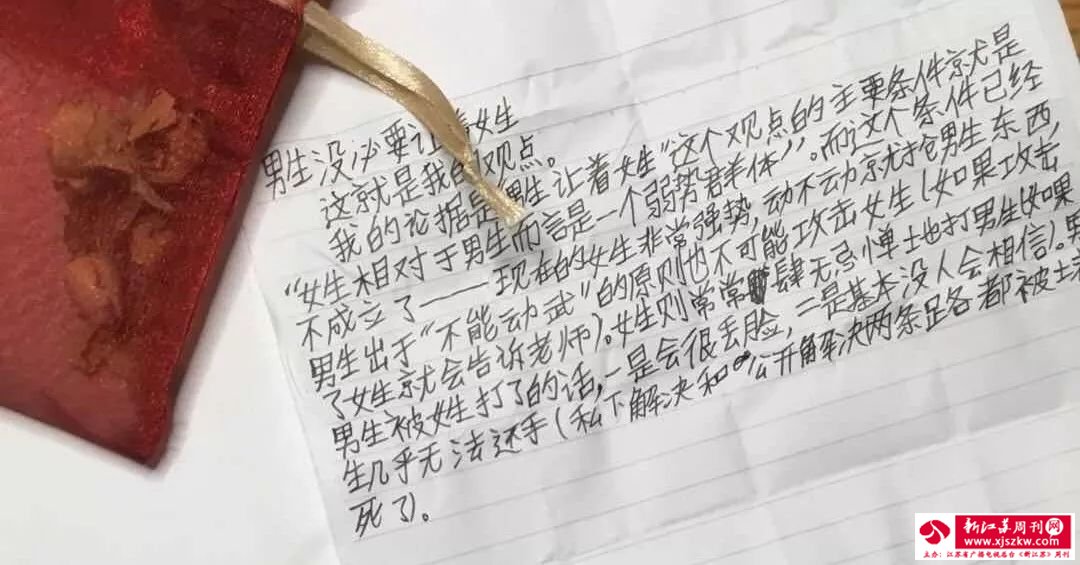 男生没必要让着女生
这就是我的观点。
我的论据是男生让着女生"这个观点的主要条件就是
"女生相对于男生而言是一个弱势群体"。而这个条件已经
不成立了——现在的女生非常强势,动不动就抢男生东西,
男生出于"不能动武"的原则也不可能攻击女生(如果攻击
了女生就会告诉老师)。女生则常常肆无忌惮地打男生(如果
男生被女生打了的话,一是会很丢脸,二是基本没人会相信)。男
生几乎无法还手(私下解决和公开解决两条路都被
死了)。
新江苏周刊网
www.xjszkw.com
主办:江苏省广播电视总台《新江苏》周刊